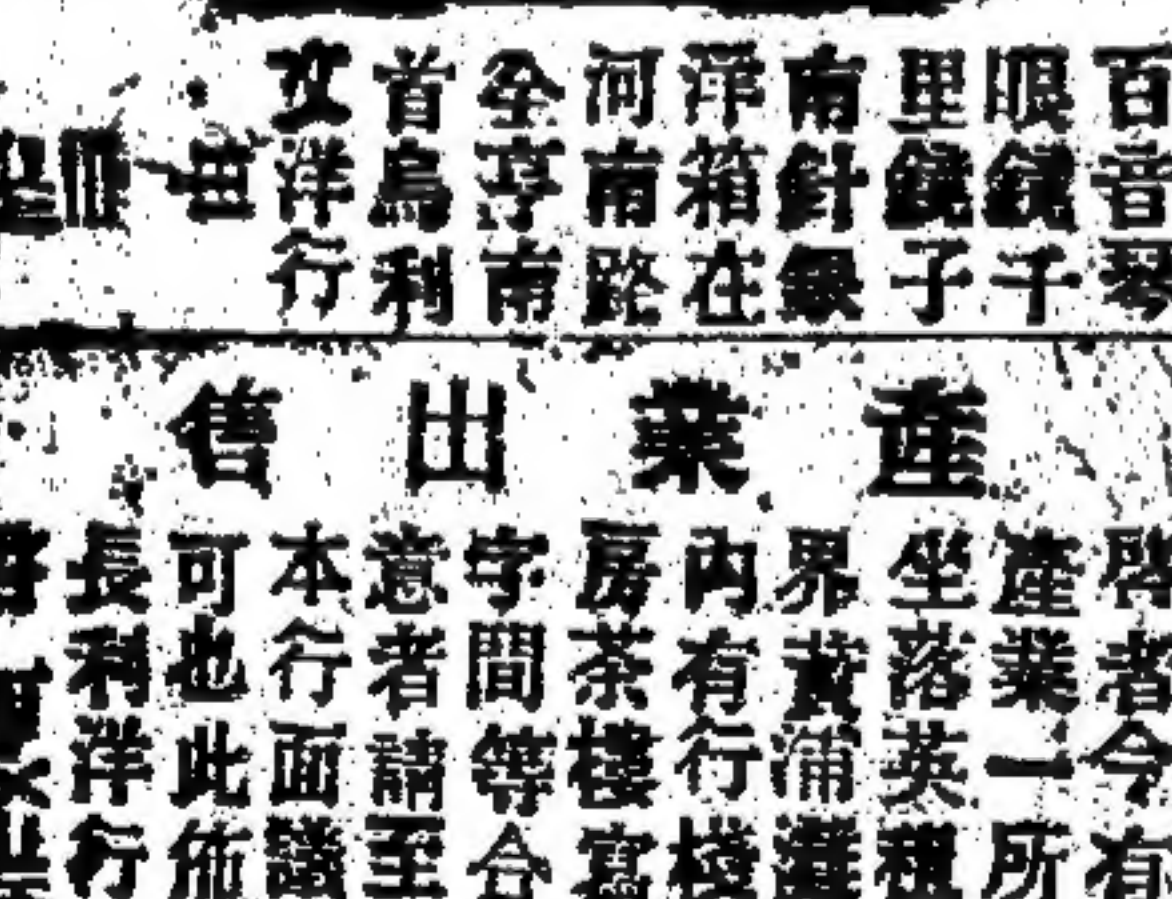 百音琴
眼鏡千
里鏡子
南針銀
洋箱在
河南路
全亨南
首烏利
孖洋行
產業出售
啓者今有
產業一所
坐落英租
界黃浦灘
內有行棧
房茶樓寫
字間等合
意者請至
本行面議
可也此佈
長利洋行